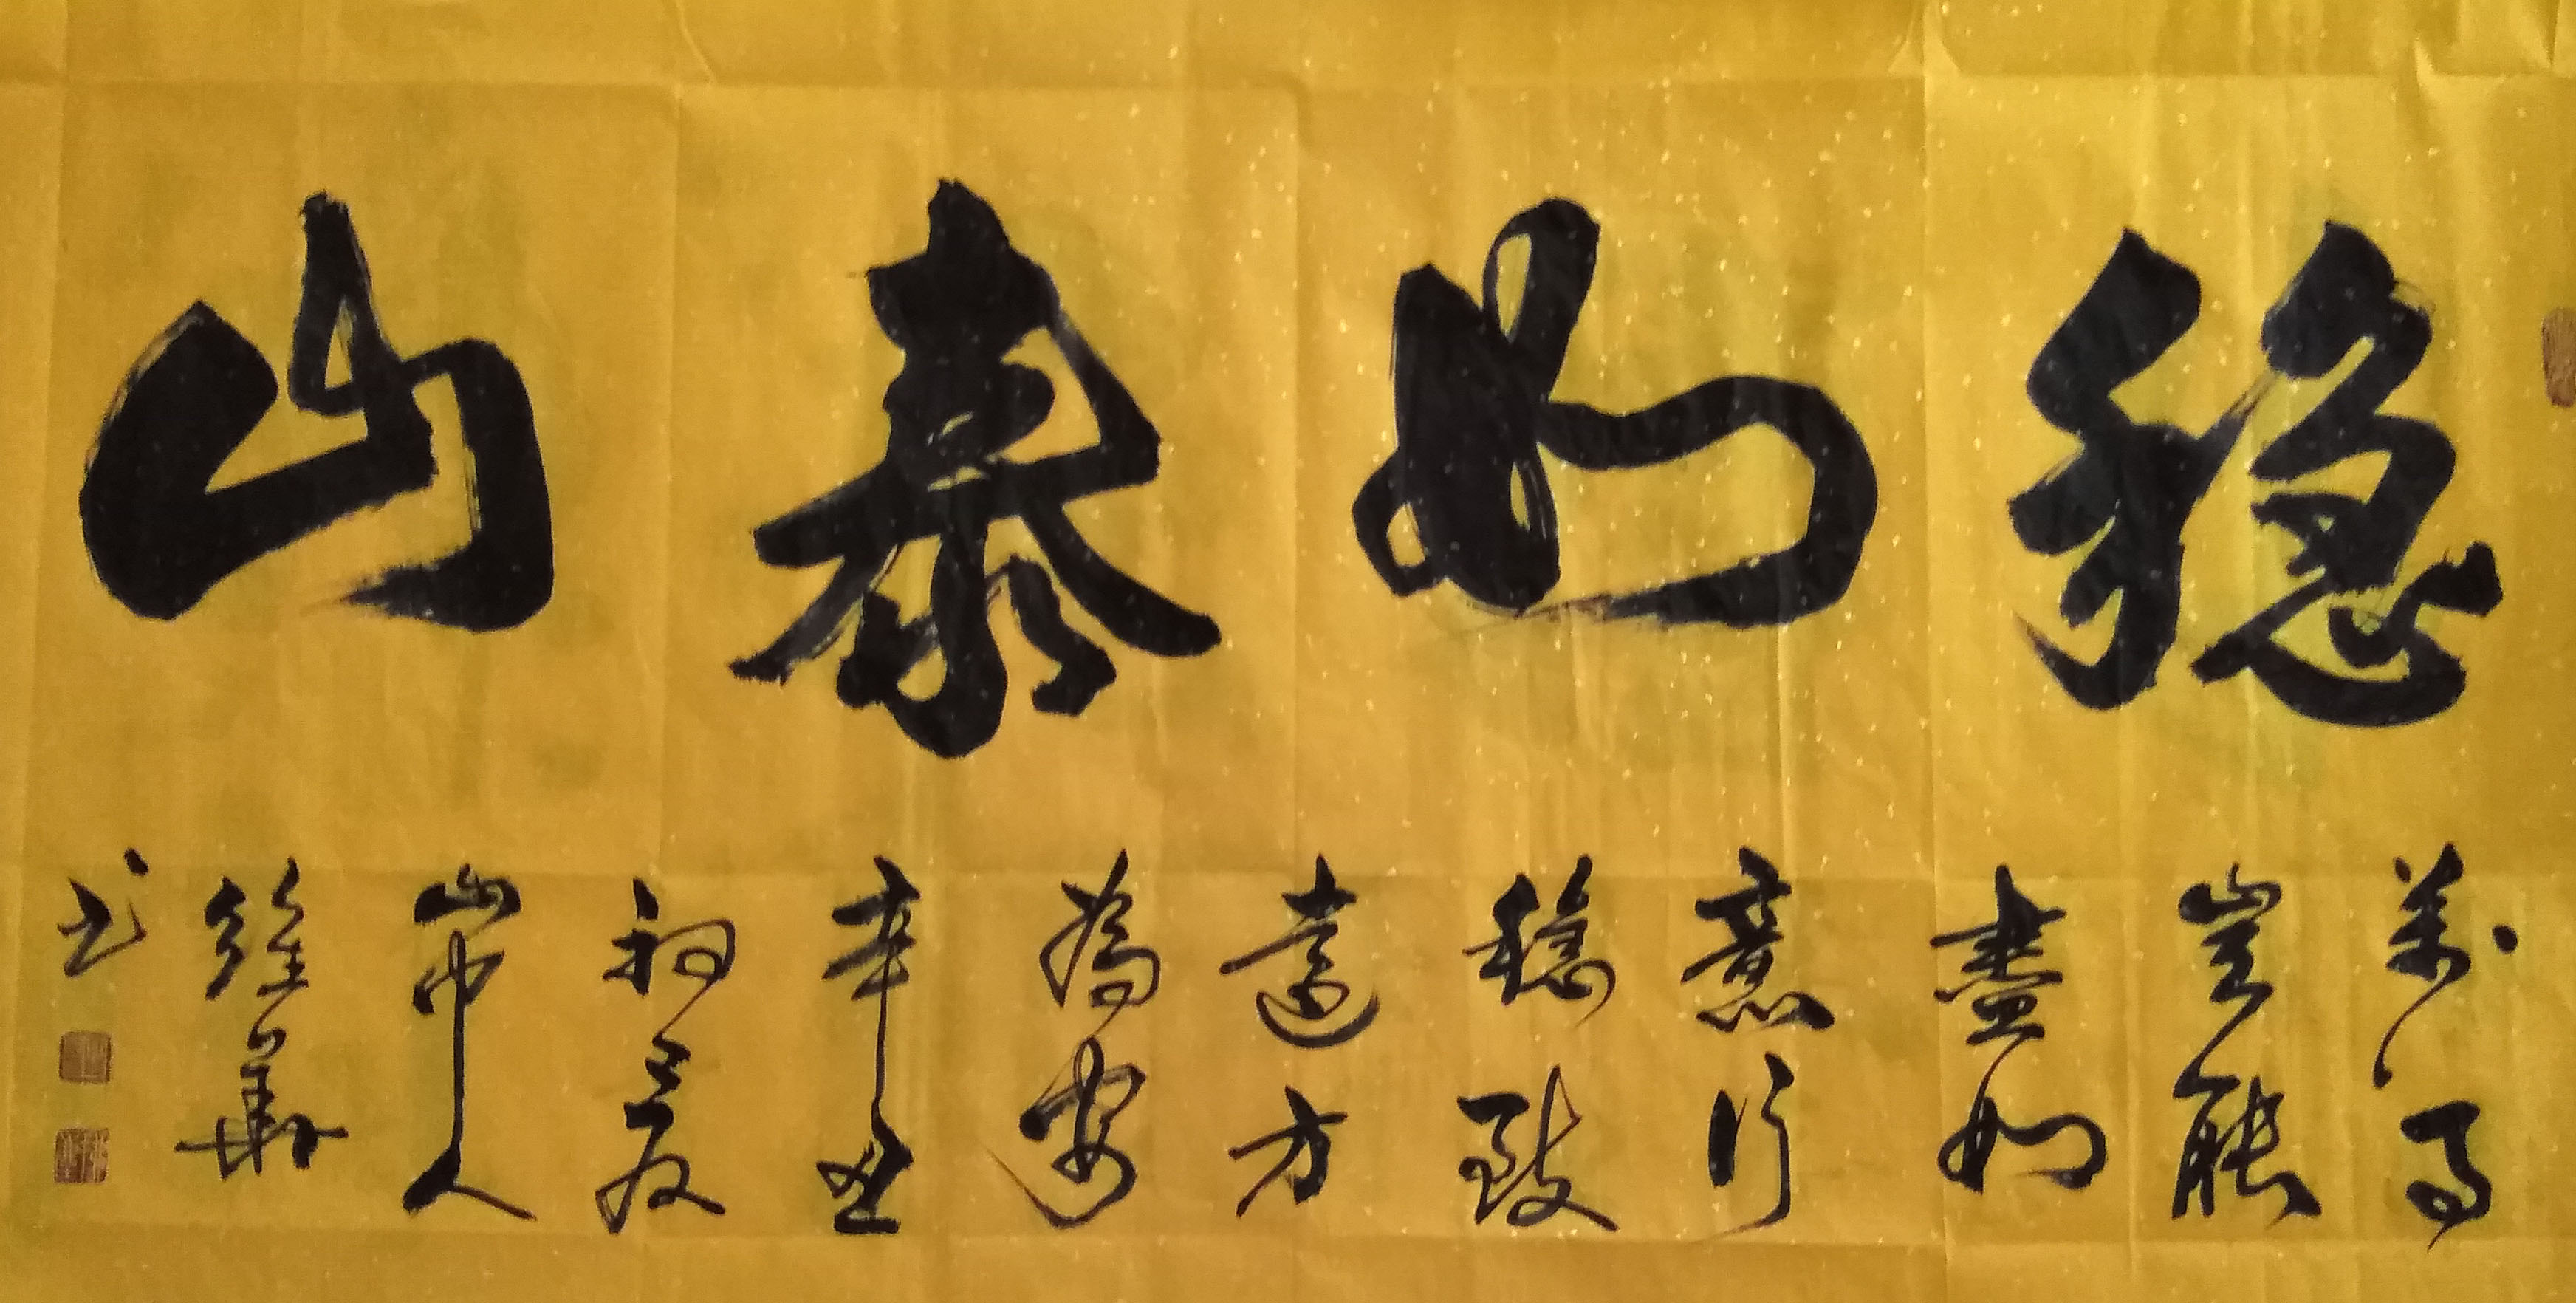 稳如泰山
萬事
豈能
盡如
意行
穩致
遠方
為安
辛丑
初夏
山中人
維華
书